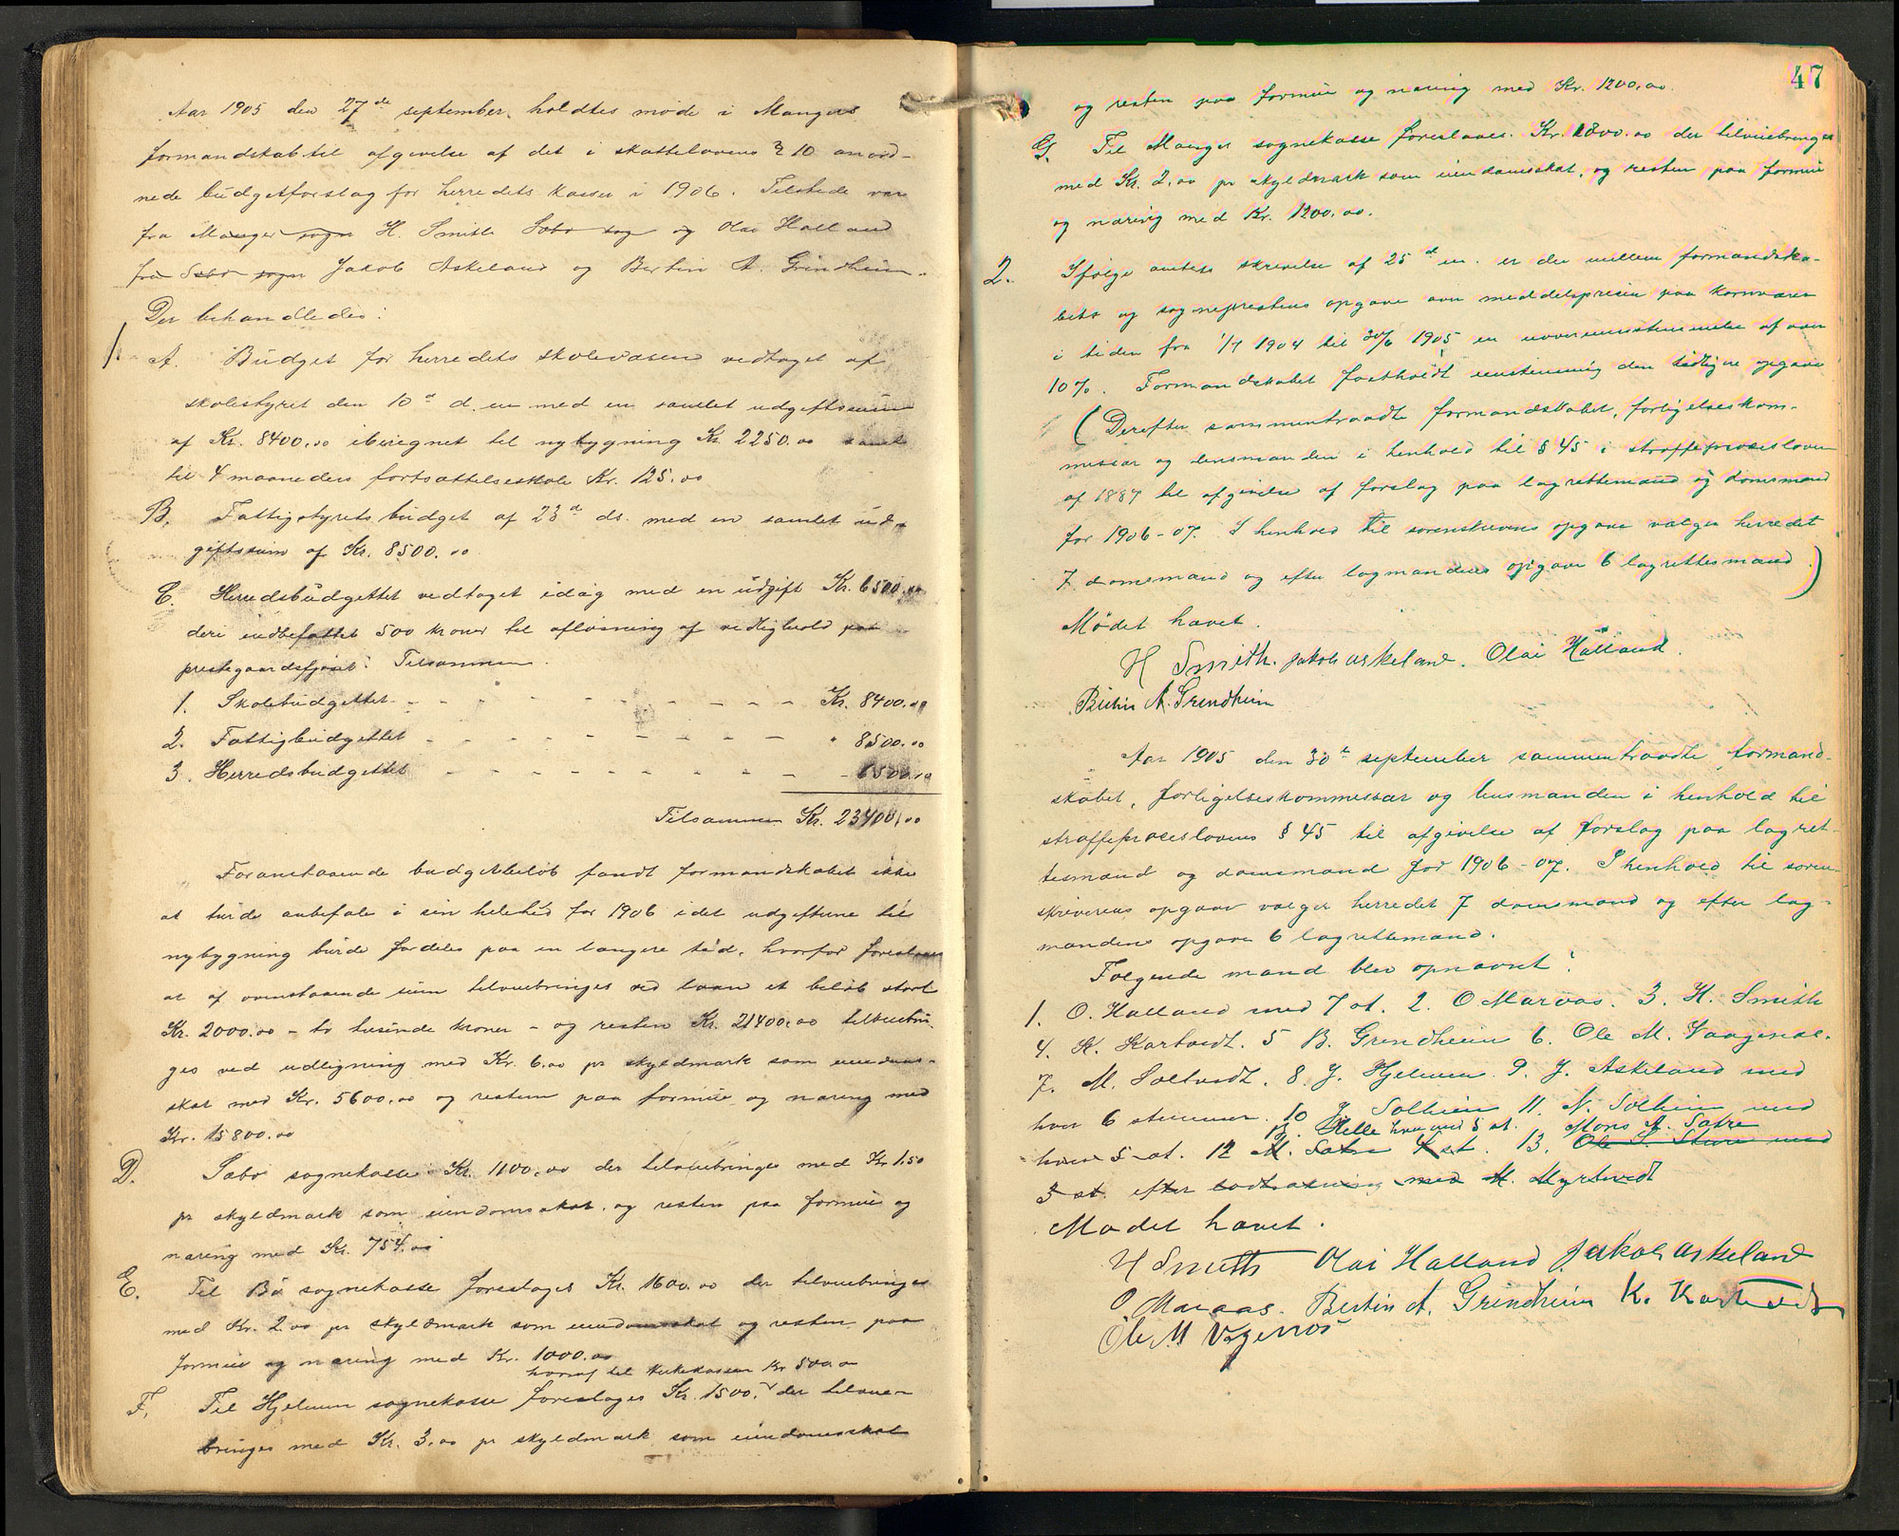 Aar 1905 den 27de september holdtes møde i Mangers
formandskab til afgivelse af det i skattelovens § 10 anord-
nede budgetforslag for herredets kasser i 1906. Tilstede var
fra Manger sogn H. Smith Sæbø sogn og Olai Halland
fra Sæbø sogn Jakob Askeland og Bertin A. Grindheim.
Der behandledes:
1. A. Budget for herredets skolevæsen vedtaget af
skolestyret den 10de d. m. med en samlet udgiftssum
af Kr. 8400.00 iberegnet til nybygning Kr. 2250.00 samt
til 4 maaneders fortsættelsesskole Kr. 125.00
B. Fattigstyrets budget af 23d ds. med en samlet ud-
giftssum af Kr. 8500.00
C. Herredsbudgettet vedtaget idag med en udgift Kr. 6500.00
deri indbefattet 500 kroner til afløsning af vedligehold paa
prestegaardsfjøset: Tilsammen.
1. Skolebudgettet - - - - - - - - Kr. 8400.00
2. Fattigbudgettet - - - - - - - - " 8500.00
3. Herredsbudgettet - - - - - - - - - 6500.00
Tilsammen Kr. 23400,00
Foranstaaende budgetbeløb fandt formandskabet ikke
at turde anbefale i sin helehed for 1906 idet udgifterne til
nybygning burde fordeles paa en længere tid, hvorfor foreslaaes
at af ovenstaaende sum tilveiebringes ved laan et beløb stort
Kr. 2000.00 - to tusinde kroner - og resten Kr. 21400.00 tilveiebrin-
ges ved udligning med Kr. 6.00 pr skyldmark som eiendoms-
skat med Kr. 5600.00 og resten paa formue og næring med
Kr. 15800.00
D. Sæbø sognekasse Kr. 1100.00 der tilveiebringes med Kr 1.50
pr skyldmark som eiendomsskat, og resten paa formue og
næring med Kr. 754.00
E. Til Bø sognekasse foreslages Kr. 1600.00 der tilveiebringes
med Kr. 2.00 pr skyldmark som eiendomsskat og resten paa
formue og næring med Kr. 1000.00
hvoraf til kirkekassen Kr 500.00
F. Til Hjelmen sognekasse foreslages Kr. 1500. der tilveie-
bringes med Kr. 3.00 pr skyldmark som eiendomsskat
47
og resten paa formue og næring med Kr. 1200.00.
G. Til Manger sognekasse foreslaaes Kr. 1800.00 der tilveiebringes
med Kr. 2.00 pr skyldmark som eiendomsskat, og resten paa formue
og næring med Kr. 1200.00.
2. Ifølge amtets skrivelse af 25de m. er der mellem formandska-
bets og sogneprestens opgave over middelprisen paa kornvarer
i tiden fra 1/7 1904 til 30/6 1905 en uoverensstemmelse af over
10%. Formandskabet fastholdt enstemmig den tidligere opgave
(Derefter sammentraadte formandskabet, forligelseskom-
missær og lensmanden i henhold til § 45 i straffeprocesloven
af 1887 til afgivelse af forslag paa lagrettemænd og domsmænd
for 1906-07. I henhold til sorenskriverens opgave vælger herredet
7 domsmænd og efter lagmandens opgave 6 lagrettemænd.)
Mødet hævet.
H Smith. Jakob Askeland. Olai Halland.
Bertin A. Grindheim
Aar 1905 den 30te september sammentraadte formand-
skabet, forligelseskommissær og lensmanden i henhold til
straffeproceslovens § 45 til afgivelse af forslag paa lagret-
tesmænd og domsmænd for 1906-07. I henhold til soren-
skriverens opgave vælger herredet 7 domsmænd og efter lag-
mandens opgave 6 lagrettemænd.
Følgende mænd blev opnævnt:
1. O. Halland med 7 st. 2. O Maraas. 3. H. Smith
4. K. Kartveit. 5 B. Grindheim 6. Ole M. Vaagenes.
7. M. Toltvedt. 8. J. Hjelmen 9. J. Askeland med
hver 6 stemmer. 10 J. Solheim 11. N. Solheim med
12. Helle hver med 5 st. Mons A. Sætre
hver 5 st. 12 M. Sætre 4 st. 13. Ole S. Sture med
3 st. efter lodtrækning med M. Myrtvedt
Mødet hævet.
H Smith Olai Halland Jakob Askeland
O Maraas. Bertin A. Grindheim K. Kartveit
Ole M Vågenes